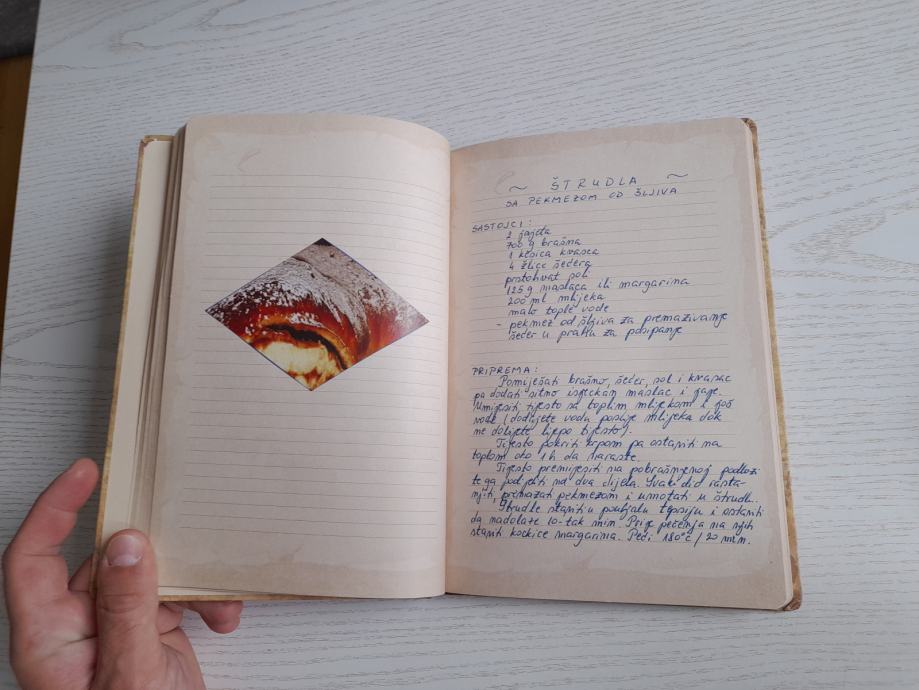 ~ ŠTRUDLA ~
SA PEKMEZOM OD ŠLJIVA
SASTOJCI:
2 jajeta
700 g brašna
1 kesica kvasca
4 žlice šećera
prstohvat soli
125 g maslaca ili margarina
200 ml mlijeka
malo tople vode
- pekmez od šljiva za premazivanje
šećer u prahu za posipanje
PRIPREMA:
Pomiješati brašno, šećer, sol i kvasac
pa dodati sitno isjeckan maslac i jaje.
Umijesiti tijesto sa toplim mlijekom i još
vode (dodijete vodu poslije mlijeka dok
ne dobijete lijepo tijesto).
Tijesto pokriti krpom pa ostaviti na
toplom oko 1h da naraste.
Tijesto premijesiti na pobrašnjenoj podlozi
te ga podijeliti na dva dijela. Svaki dio rasta-
njiti, premazati pekmezom i umotati u štrudl..
Štrudle staviti u pouljalu tepsiju i ostaviti
da nadolate 10-tak min. Prije pečenja na njih
staviti kockice margarina. Peći 180°C / 20 min.